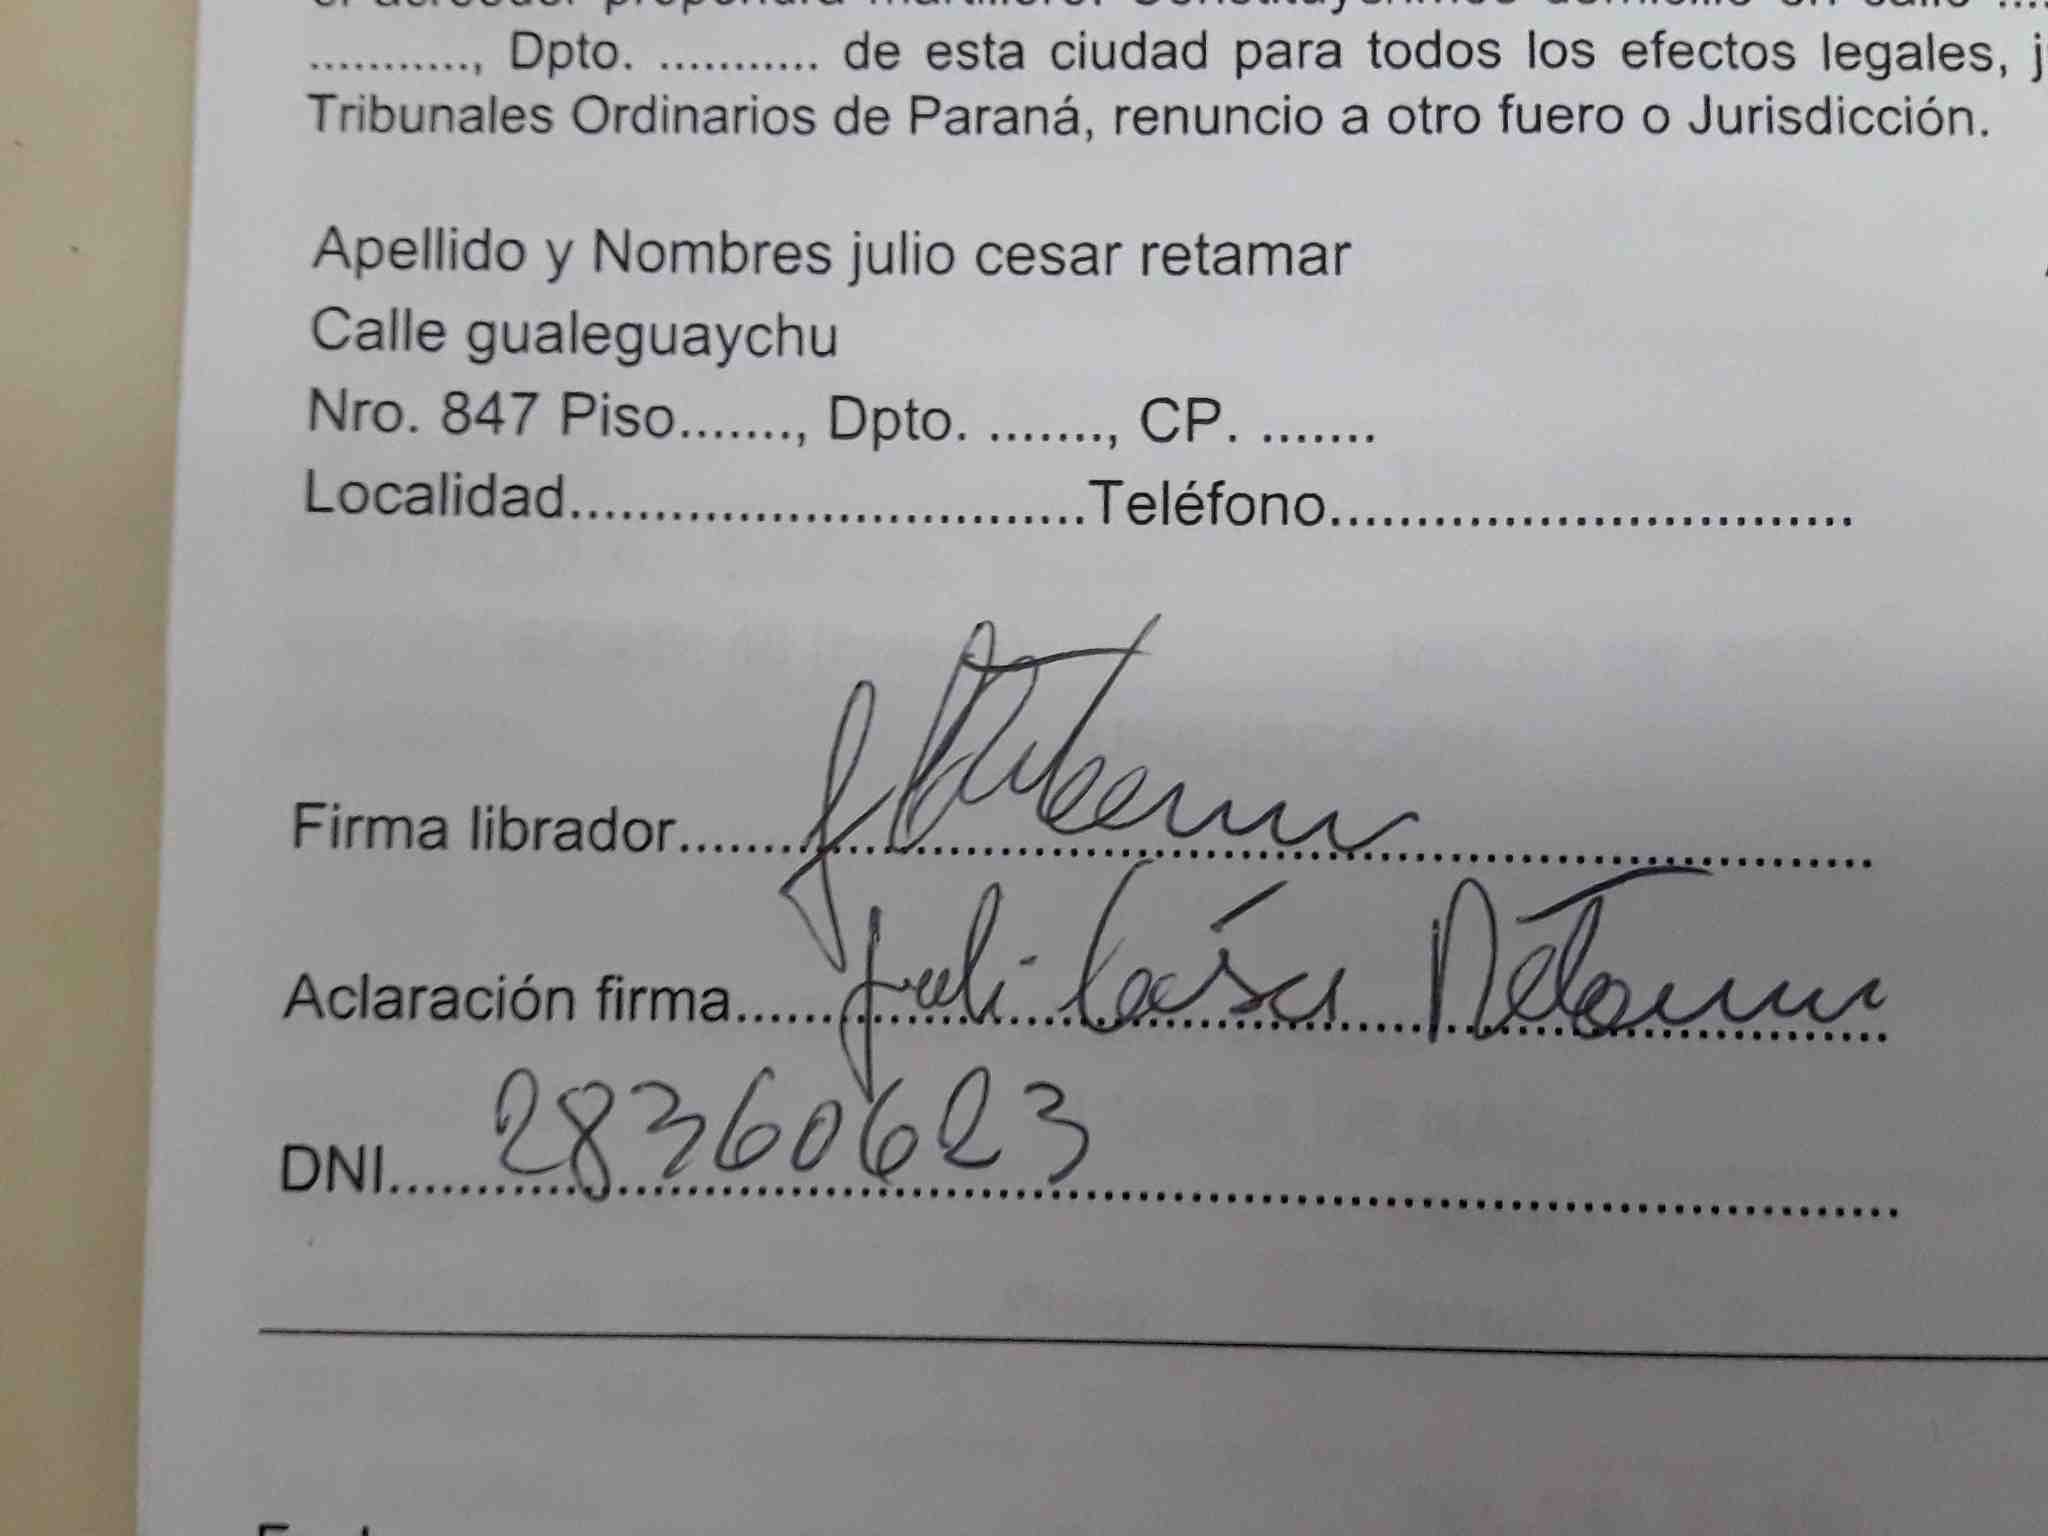 el acreedor propondrá martillero. Constituyo/imos domicilio en calle ....
............, Dpto. ............ de esta ciudad para todos los efectos legales, j
Tribunales Ordinarios de Paraná, renuncio a otro fuero o Jurisdicción.
Apellido y Nombres julio cesar retamar
Calle gualeguaychu
Nro. 847 Piso......., Dpto. ......., CP. .......
Localidad...............................Teléfono...............................
Firma librador
Aclaración firma Julio César Retamar
DNI 28360623